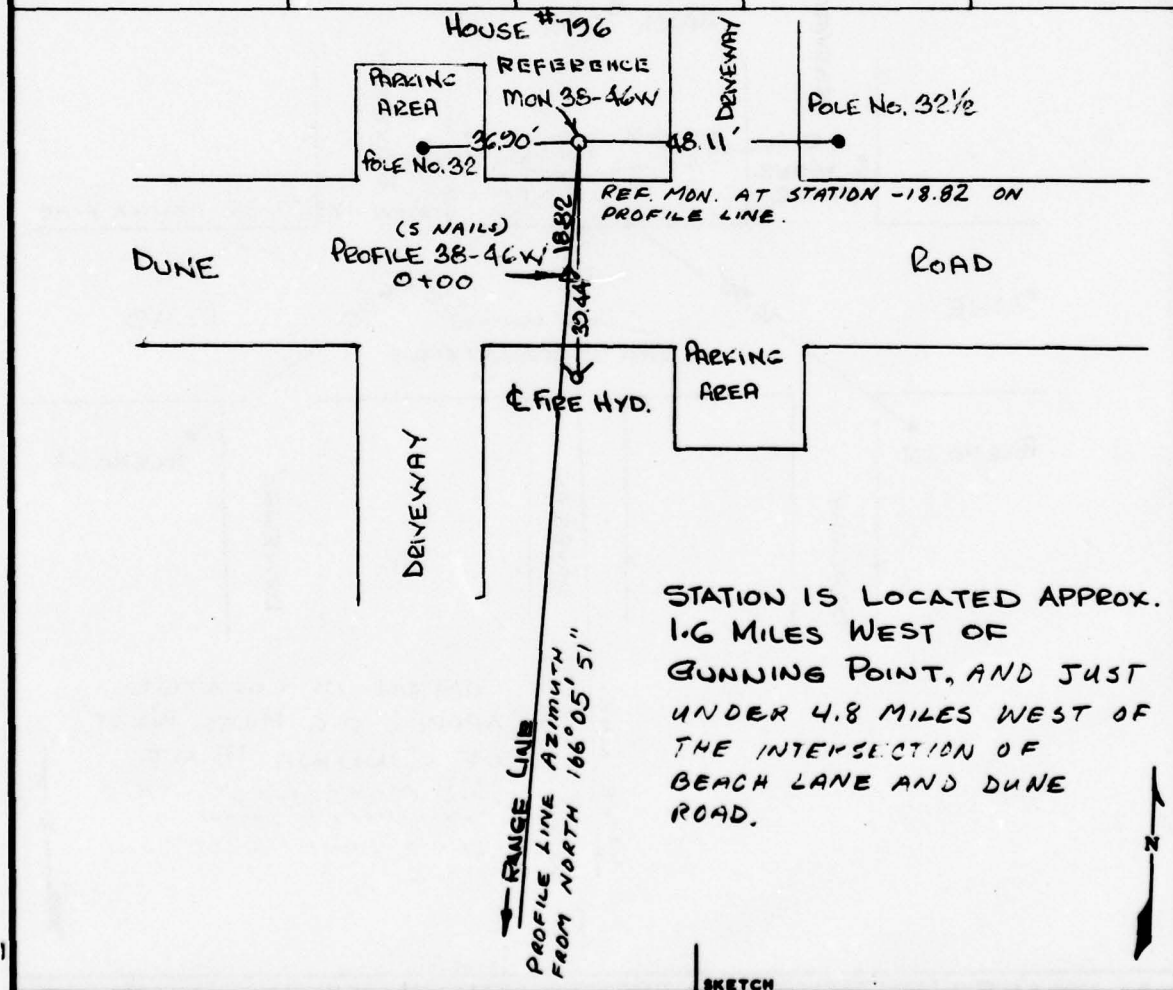 HOUSE #796
PARKING
AREA
REFERENCE
MON 38-46W
DRIVEWAY
POLE No. 32½
36.90'
48.11'
POLE No. 32
REF. MON. AT STATION -18.82 ON
PROFILE LINE.
18.82
(5 NAILS)
PROFILE 38-46W
0+00
DUNE
ROAD
39.44
PARKING
AREA
℄ FIRE HYD.
DRIVEWAY
STATION IS LOCATED APPROX.
1.6 MILES WEST OF
GUNNING POINT, AND JUST
UNDER 4.8 MILES WEST OF
THE INTERSECTION OF
BEACH LANE AND DUNE
ROAD.
RANGE LINE
PROFILE LINE AZIMUTH
FROM NORTH 166°05'51"
N
SKETCH